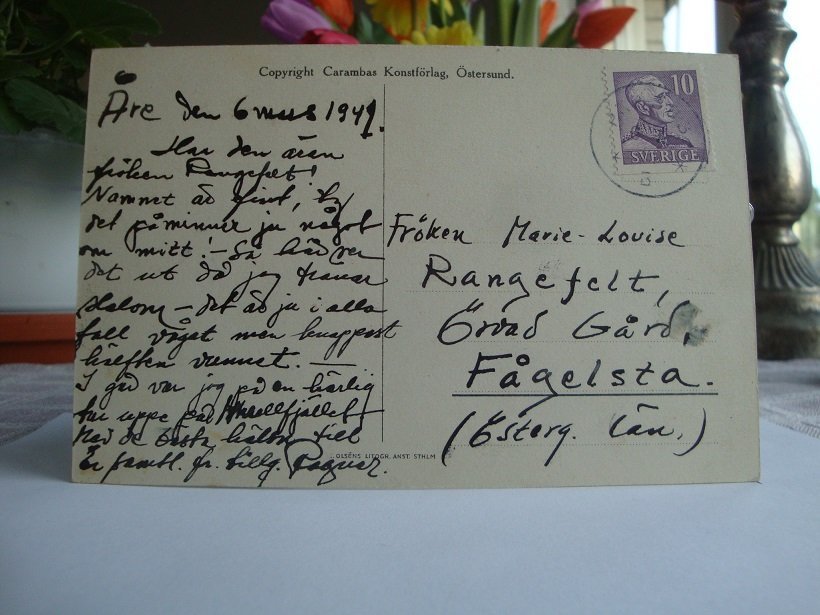 Copyright Carambas Konstförlag, Östersund.
10
SVERIGE
Åre den 6 mars 1941.
Har den äran
fröken Rangefelt!
Namnet är fint, ty
det påminner ju något
om mitt! – Så här ser
det ut då jag tränar
slalom – det är ju i alla
fall vågat men knappast
hälften vunnet. –
I går var jag på en härlig
tur uppe på
Med de bästa hälsn. till
Er faml. fr. tillg. Ragnar.
Fröken Marie-Louise
Rangefelt,
Örvad Gård,
Fågelsta.
(Österg. Län.)
OLSÉNS LITOGR. ANST. STHLM